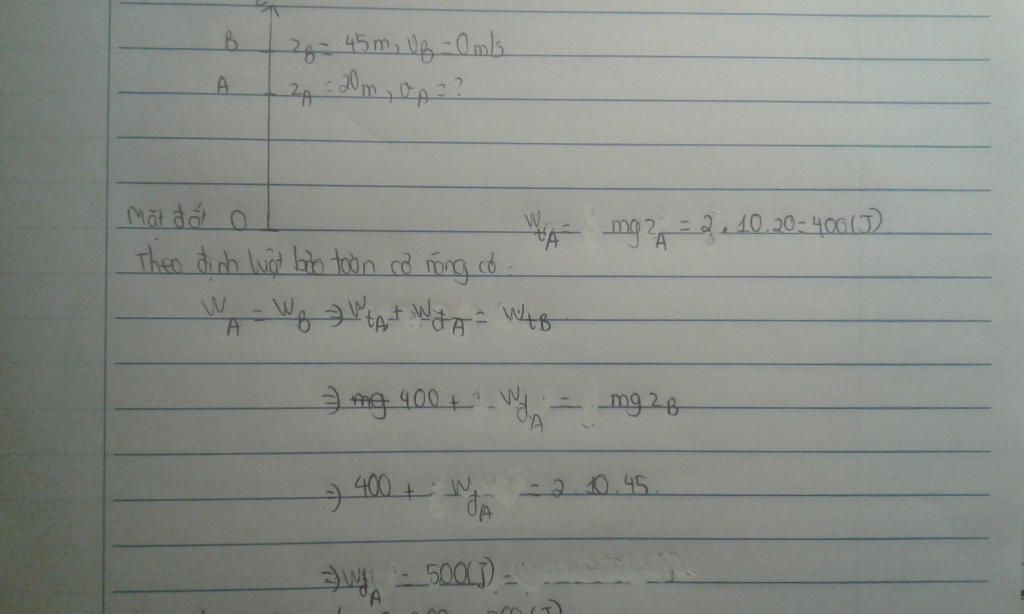 B z_B = 45m, v_B = 0m/s
A z_A = 20m, v_A = ?
Mặt đất O
W_tA = mgz_A = 2.10.20 = 400(J)
Theo định luật bảo toàn cơ năng có:
W_A = W_B ⇒ W_tA + W_đA = W_tB
⇒ mg 400 + W_đA = mgz_B
⇒ 400 + W_đA = 2.10.45.
⇒ W_đA = 500(J) =